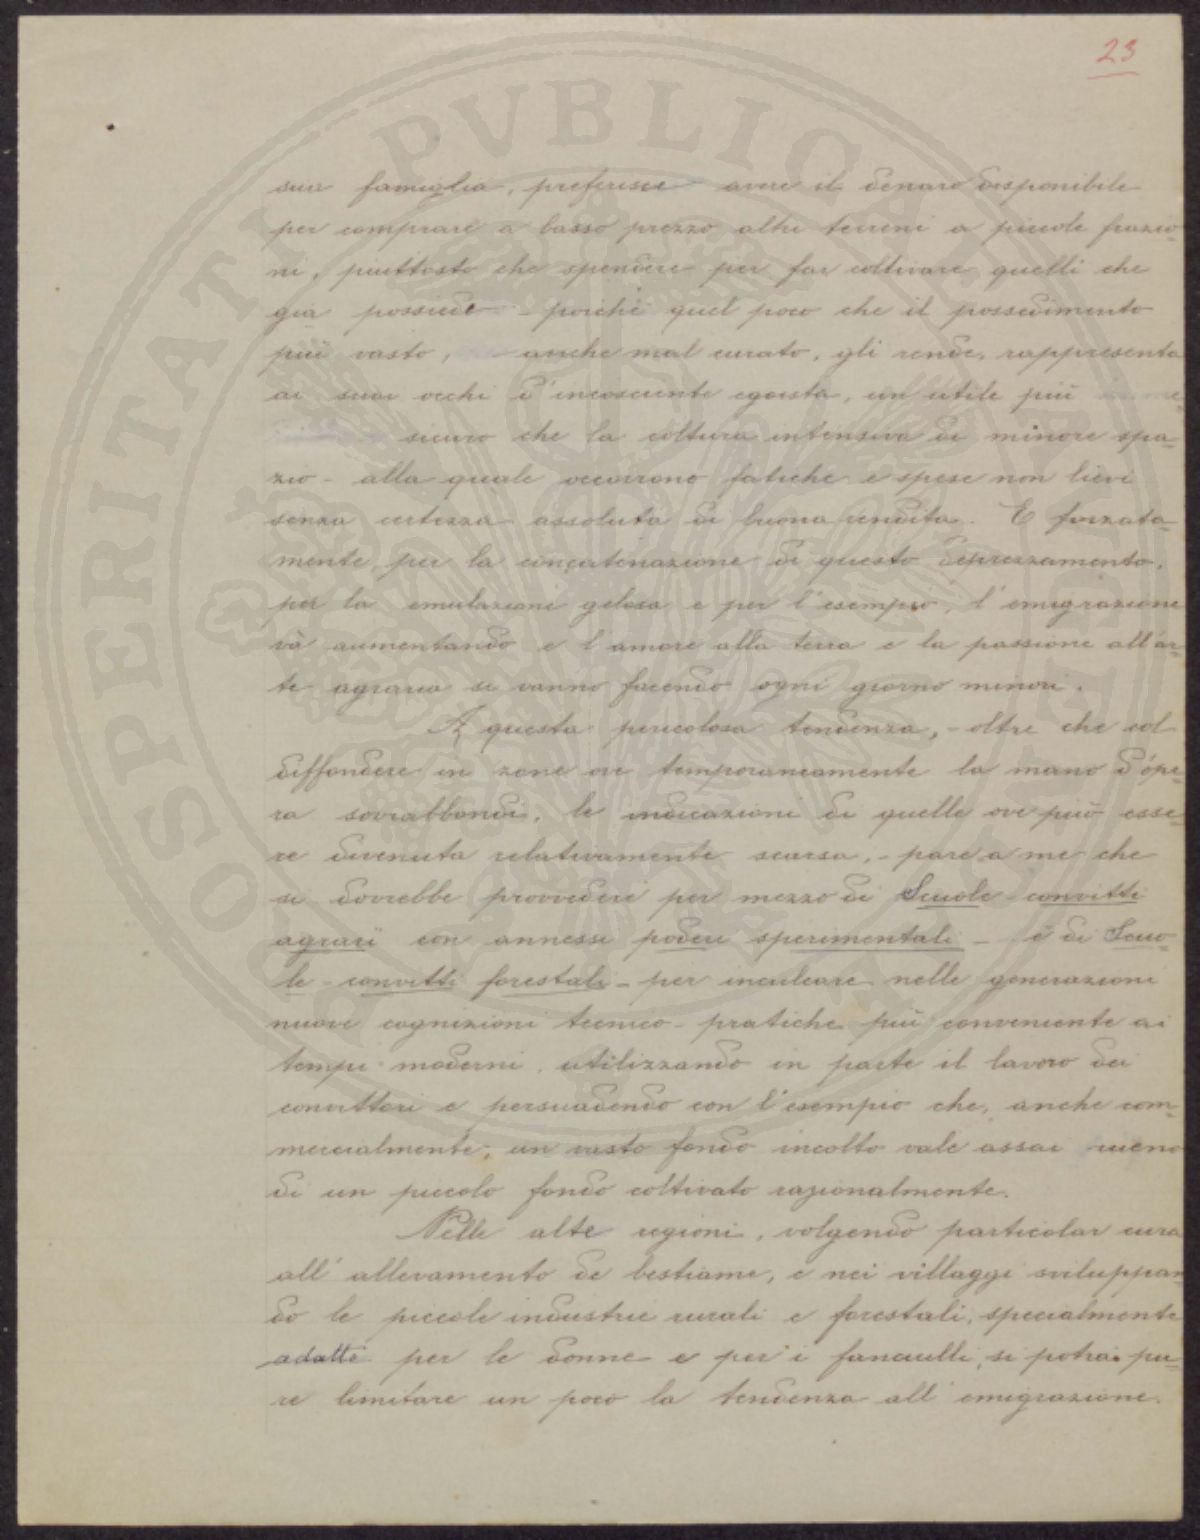 23
sua famiglia, preferisce avere il denaro disponibile
per comprare a basso prezzo altri terreni a piccole frazio-
ni, piuttosto che spendere per far coltivare quelli che
già possiede - poichè quel poco che il possedimento
più vasto, anche mal curato, gli rende, rappresenta
ai suoi occhi d'incosciente egoista, un utile più
sicuro che la coltura intensiva di minore spa-
zio - alla quale occorrono fatiche e spese non lievi
senza certezza assoluta di buona vendita. E forzata-
mente, per la concatenazione di questo deprezzamento,
per la emulazione gelosa e per l'esempio, l'emigrazione
và aumentando e l'amore alla terra e la passione all'ar-
te agraria si vanno facendo ogni giorno minori.
A questa pericolosa tendenza, - oltre che col
diffondere in zone ove temporaneamente la mano d'ope-
ra sovrabbondi, le indicazioni di quelle ove può esse-
re divenuta relativamente scarsa, - pare a me che
si dovrebbe provvedere per mezzo di Scuole - convitti
agrari con annessi poderi sperimentali - e di Scuo-
le - convitti forestali - per inculcare nelle generazioni
nuove cognizioni tecnico - pratiche più conveniente ai
tempi moderni, utilizzando in parte il lavoro dei
convittori e persuadendo con l'esempio che, anche com-
mercialmente, un vasto fondo incolto vale assai meno
di un piccolo fondo coltivato razionalmente.
Nelle alte regioni, volgendo particolar cura
all'allevamento de bestiame, e nei villaggi sviluppan
do le piccole industrie rurali e forestali, specialmente
adatte per le donne e per i fanciulli, si potrà pu-
re limitare un poco la tendenza all'emigrazione.
PROSPERITATI PVBLICAE